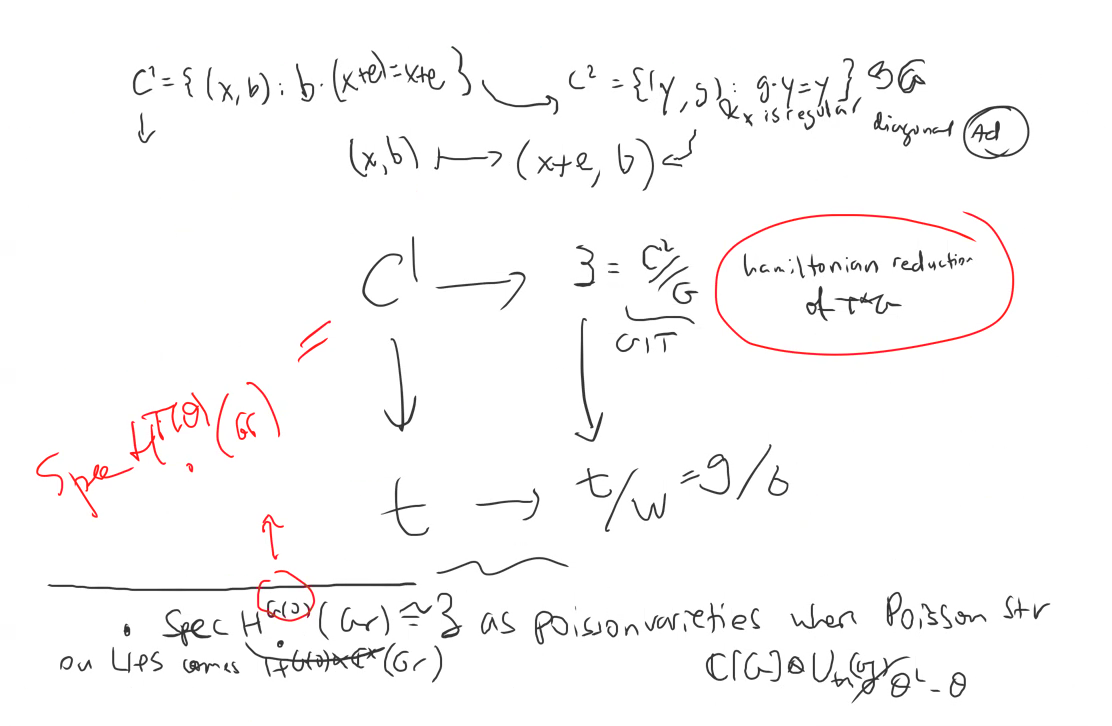 C¹ = { (x, b) : b · (x+e) = x+e } → C² = { (y, g) : g · y = y } ↻ G
↓ & x is regular diagonal Ad
(x, b) ↦ (x+e, b)
C¹ → 3 = C²//G hamiltonian reduction
GIT of T*G
Spec H.^{T(O)}(Gr) =
t → t/W = g//G
• Spec H.^{G(O)}(Gr) ≅ 3 as poisson varieties when Poisson str
on LHS comes H^{G(O)⋊C*}(Gr)
C[G] ⊗ U_ħ(g)